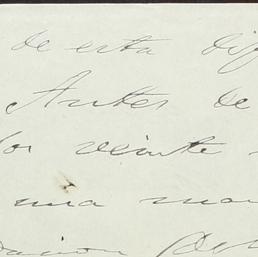 de esta dif
Antes de
los veinte
una man